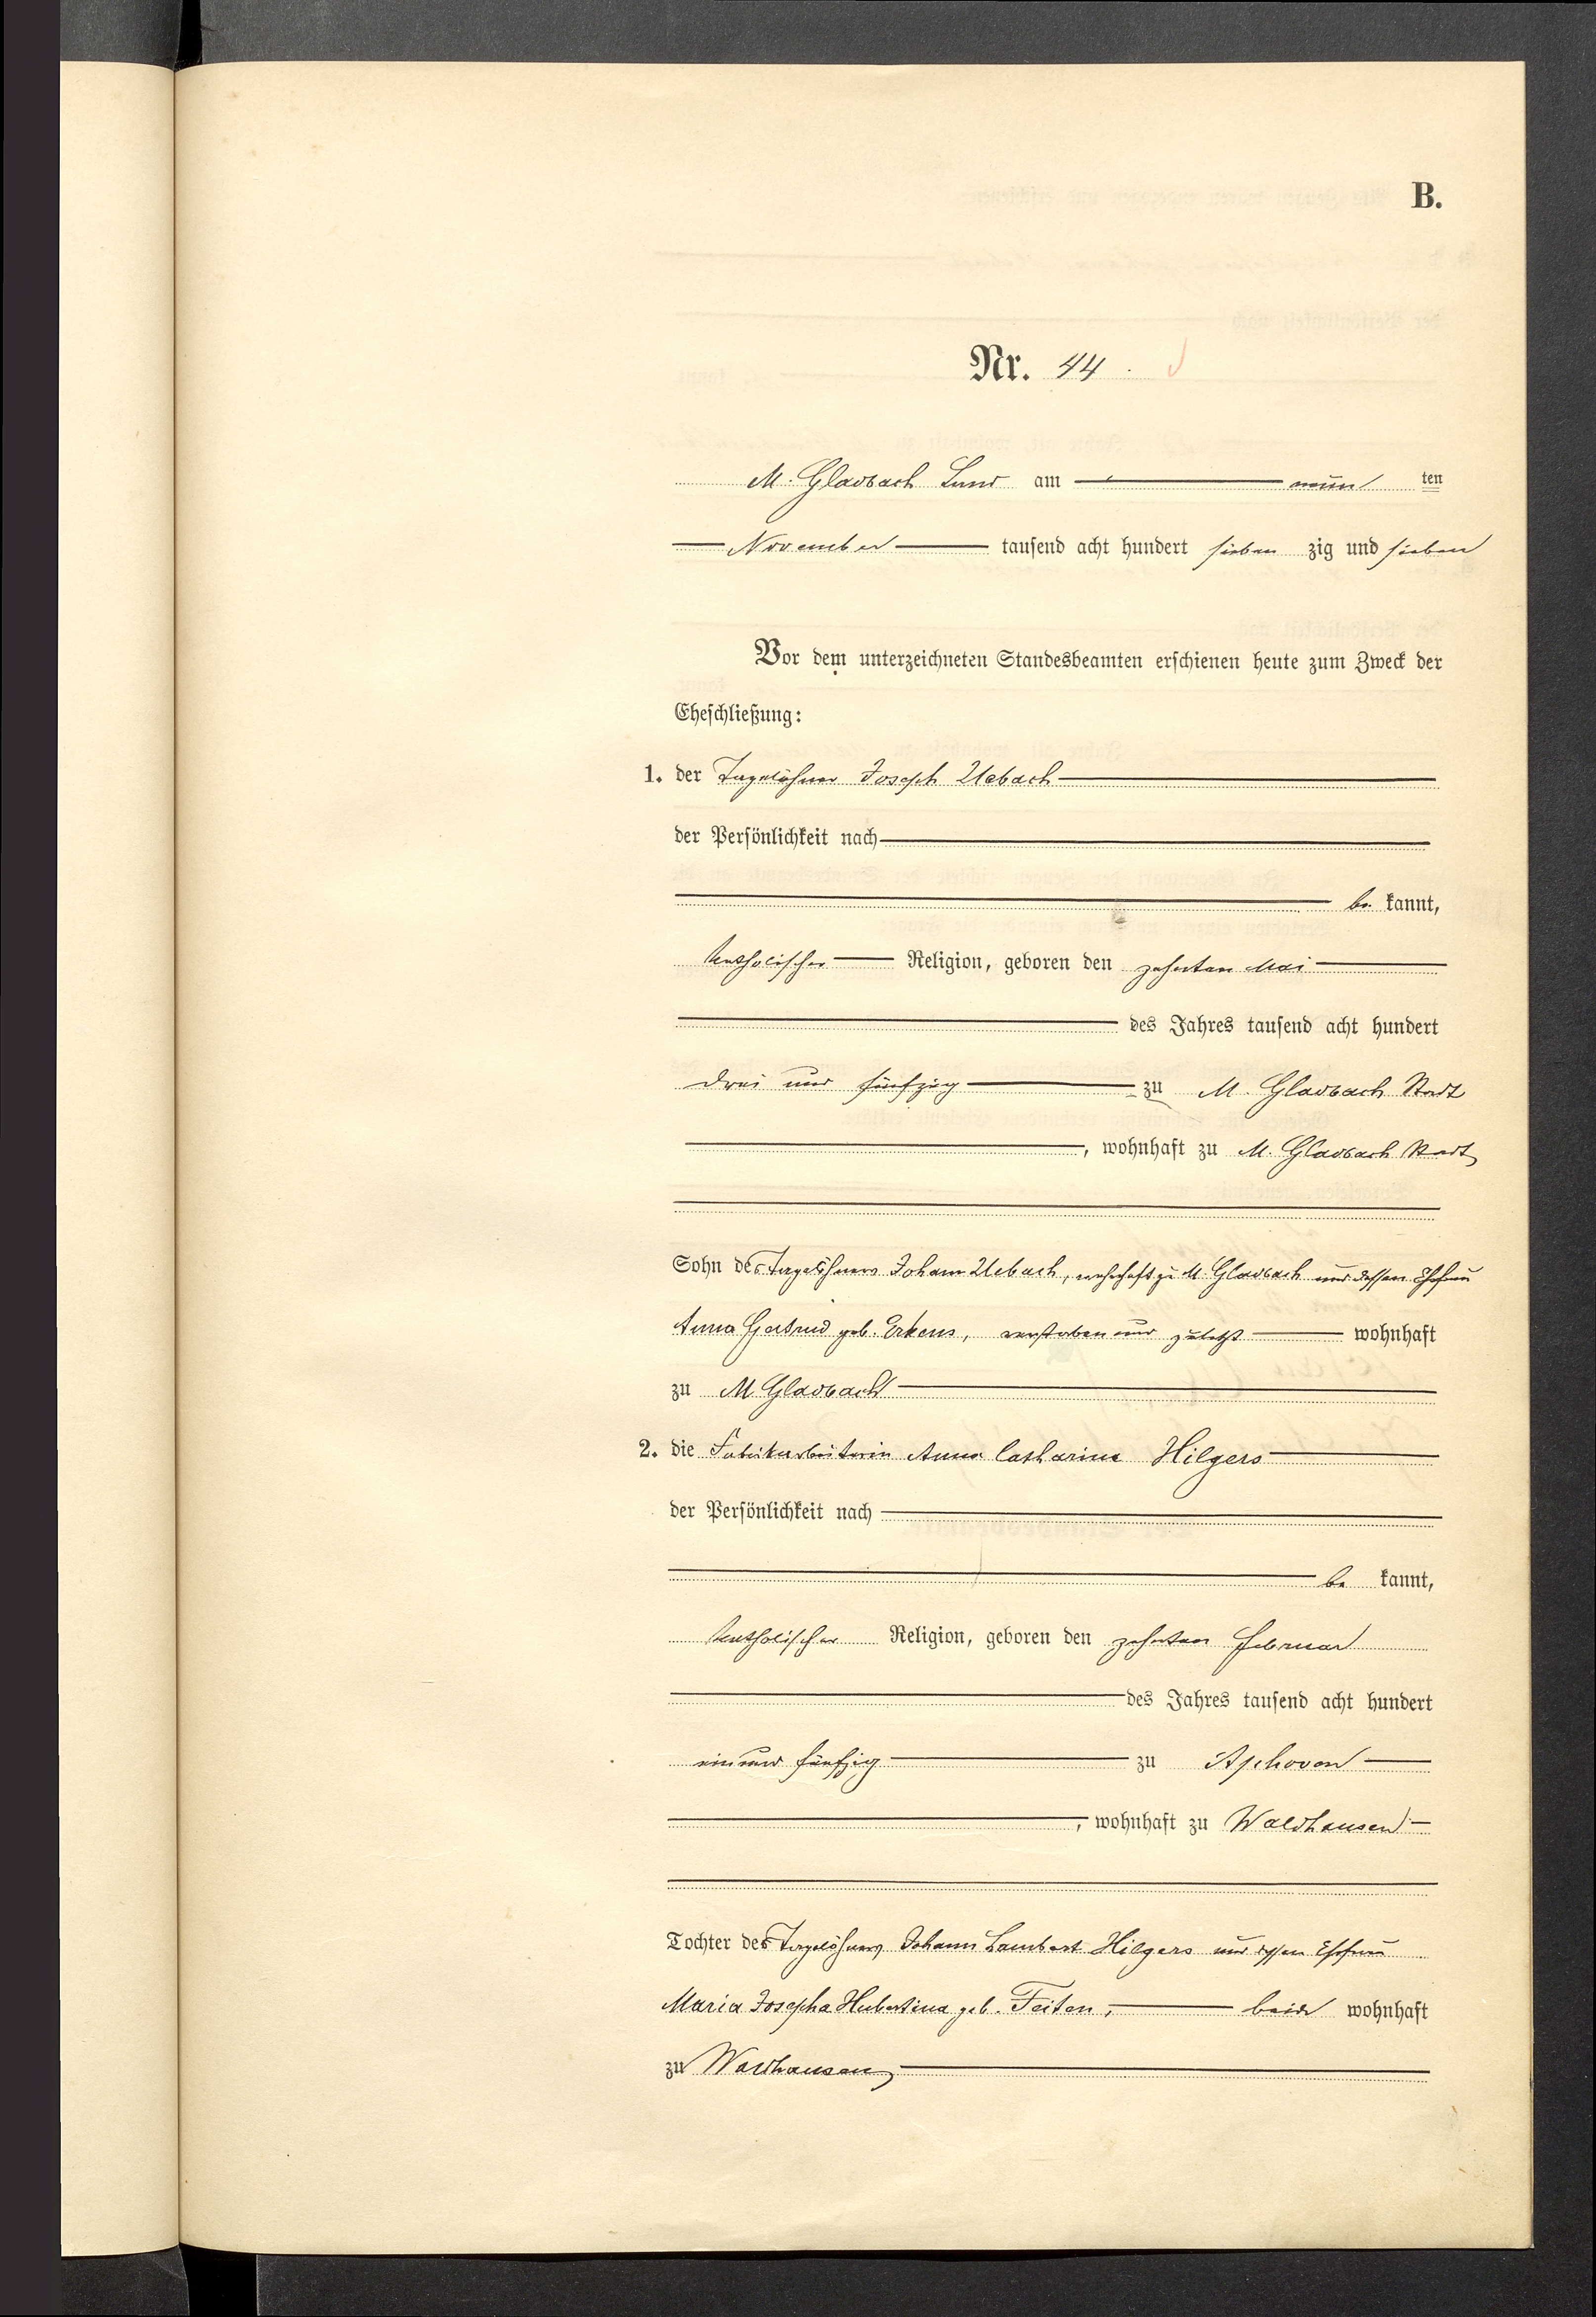 B.
Nr. 44.
M. Gladbach Land am neun ten
November tausend acht hundert sieben zig und sieben
Vor dem unterzeichneten Standesbeamten erschienen heute zum Zweck der
Eheschließung:
1. der Tagelöhner Joseph Uebach
der Persönlichkeit nach
be kannt,
katholischer Religion, geboren den zehnten Mai
des Jahres tausend acht hundert
drei und fünfzig zu M. Gladbach Stadt
, wohnhaft zu M. Gladbach Stadt
Sohn des Tagelöhners Johann Uebach, wohnhaft zu M. Gladbach und dessen Ehefrau
Anna Gertrud geb. Erkens, verstorben und zuletzt wohnhaft
zu M. Gladbach
2. die Fabrikarbeiterin Anna Catharina Hilgers
der Persönlichkeit nach
be kannt,
katholischer Religion, geboren den zehnten Februar
des Jahres tausend acht hundert
ein und fünfzig zu Aphoven
, wohnhaft zu Waldhausen
Tochter des Tagelöhners Johann Lambert Hilgers und dessen Ehefrau
Maria Josepha Hubertina geb. Feiten, beide wohnhaft
zu Waldhausen